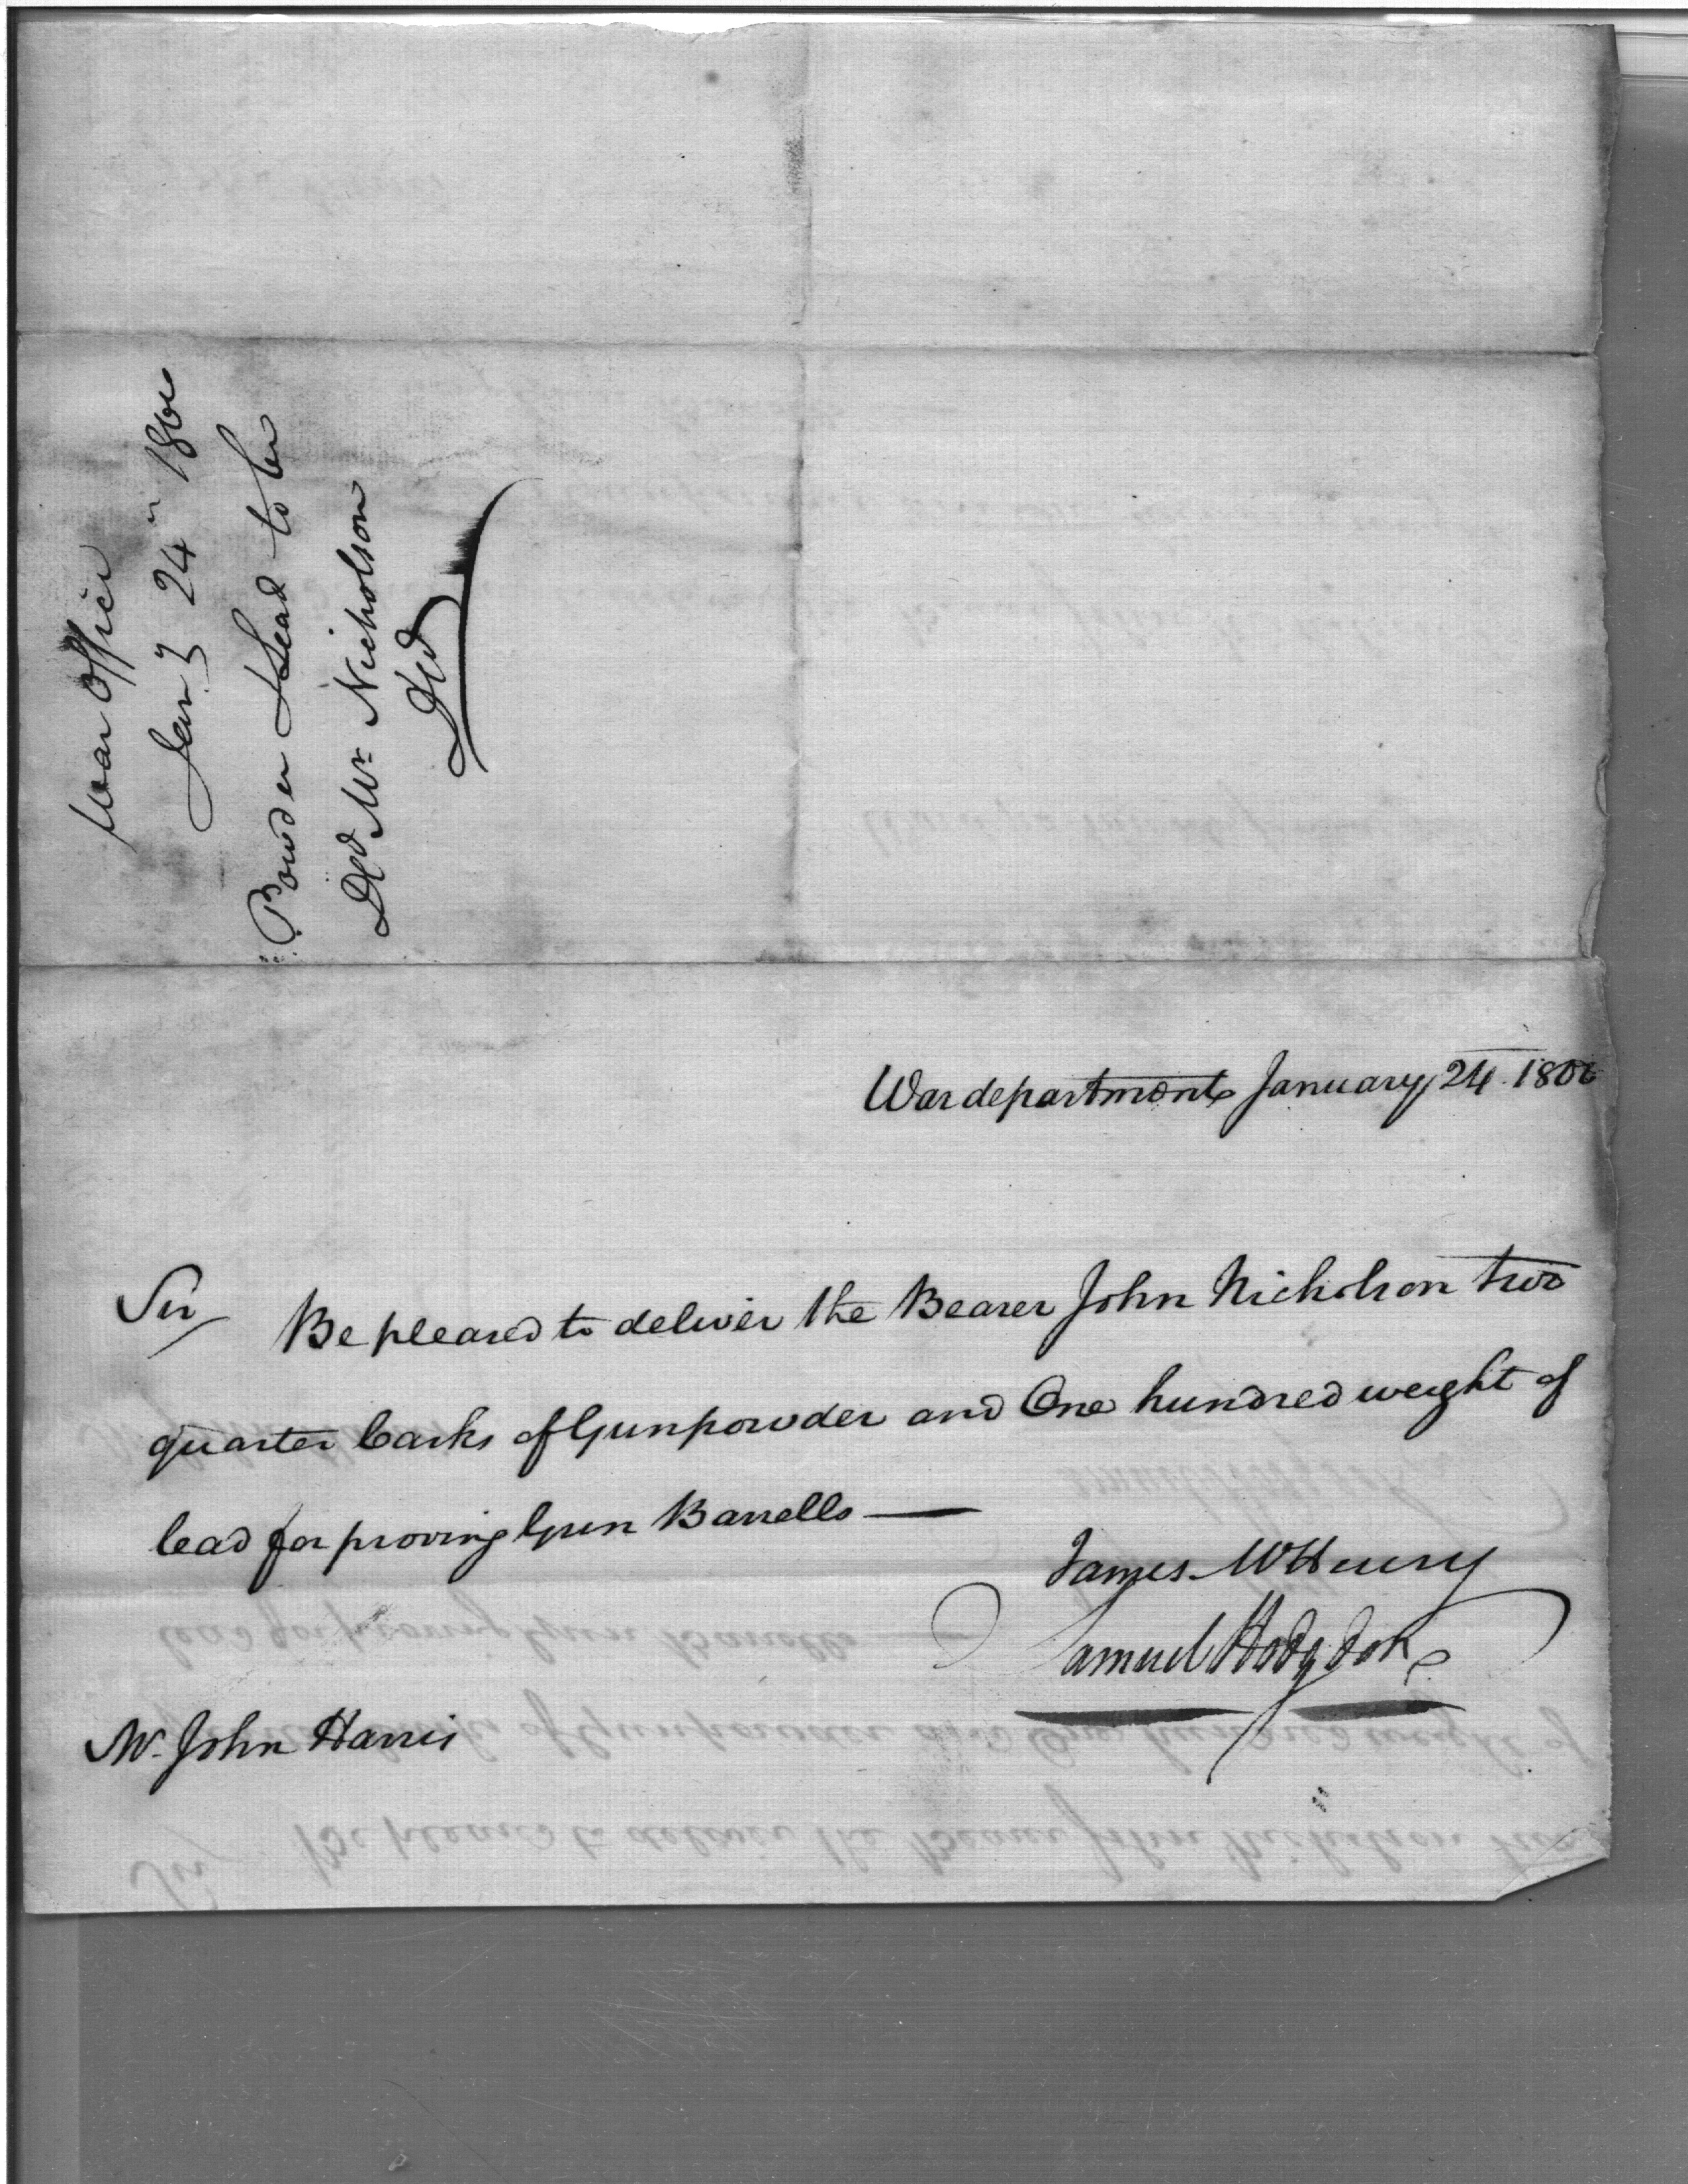 War Office
Jany 24th 1800
Powder & Lead to be
Dd Mr Nicholson
Dd
War department January 24. 1800
Sir
Be pleased to deliver the Bearer John Nicholson two
quarter Casks of Gunpowder and One hundred weight of
lead for proving Gun Barrells —
James McHenry
Samuel Hodgdon
Mr. John Harris